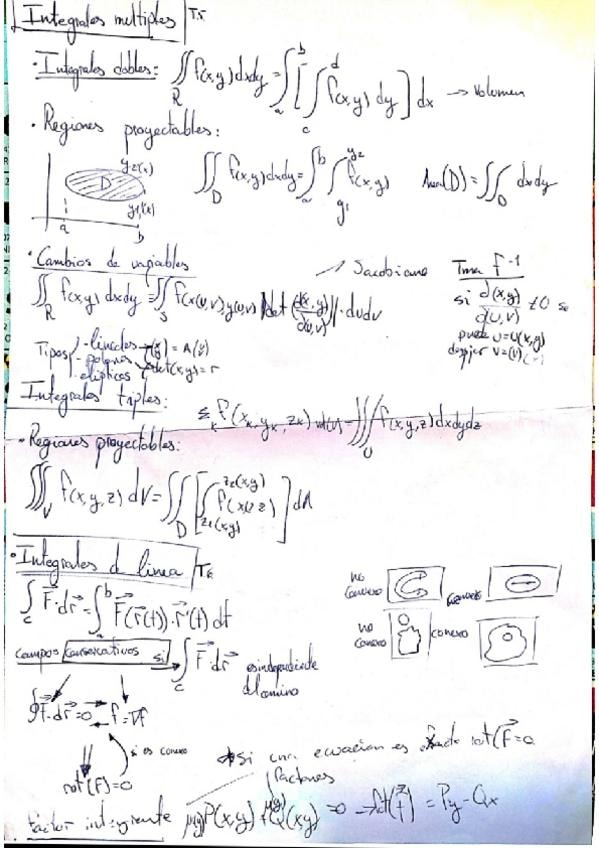 Integrales multiples T5
· Integrales dobles: ∬_R f(x,y) dxdy = ∫_a^b [ ∫_c^d f(x,y) dy ] dx → volumen
· Regiones proyectables:
y2(x)
D
y1(x)
a b
∬_D f(x,y) dxdy = ∫_a^b ∫_{y1}^{y2} f(x,y) Area(D) = ∬_D dxdy
· Cambios de variables
Jacobiano
∬_R f(x,y) dxdy = ∬_S f(x(u,v), y(u,v)) |det (d(x,y)/d(u,v))| · dudv
Tma f^-1
si d(x,y)/d(u,v) ≠ 0 se
puede u=u(x,y)
Tipos
- lineales → (x y) = A(
- polares → det(x,y) = r
elipticas
Integrales triples:
Σ_k f(x_k, y_k, z_k) = ∭_U f(x,y,z) dxdydz
· Regiones proyectables:
∭_V f(x,y,z) dV = ∬_D [ ∫_{z1(x,y)}^{z2(x,y)} f(x,y,z) ] dA
· Integrales d linea T6
∫_c F · dr = ∫_a^b F(r(t)) · r'(t) dt
no conexo
no conexo conexo
campos conservativos si ∫_c F · dr es independiente
del camino
∮ F · dr = 0 f = ∇f
si es conexo
rot(F) = 0
* Si una ecuacion es exacta rot(F = 0
factores
factor integrante μ(y)P(x,y) + μ(y)Q(xy) = 0 → = Py - Qx